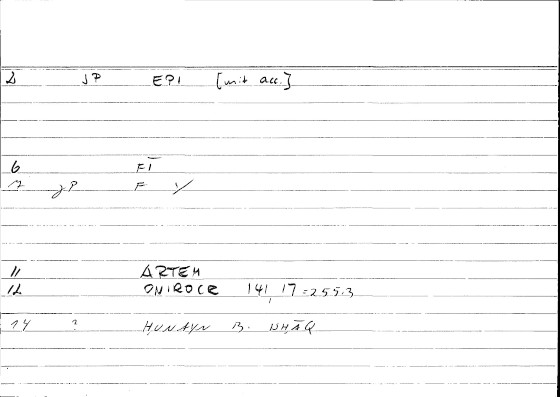 2 JP EPI [mit acc.]
6 FĪ
7 JP F Y
11 ARTEM
12 ONIROCR 141, 17 = 255.3
14 ? HUNAYN B. ISHĀQ